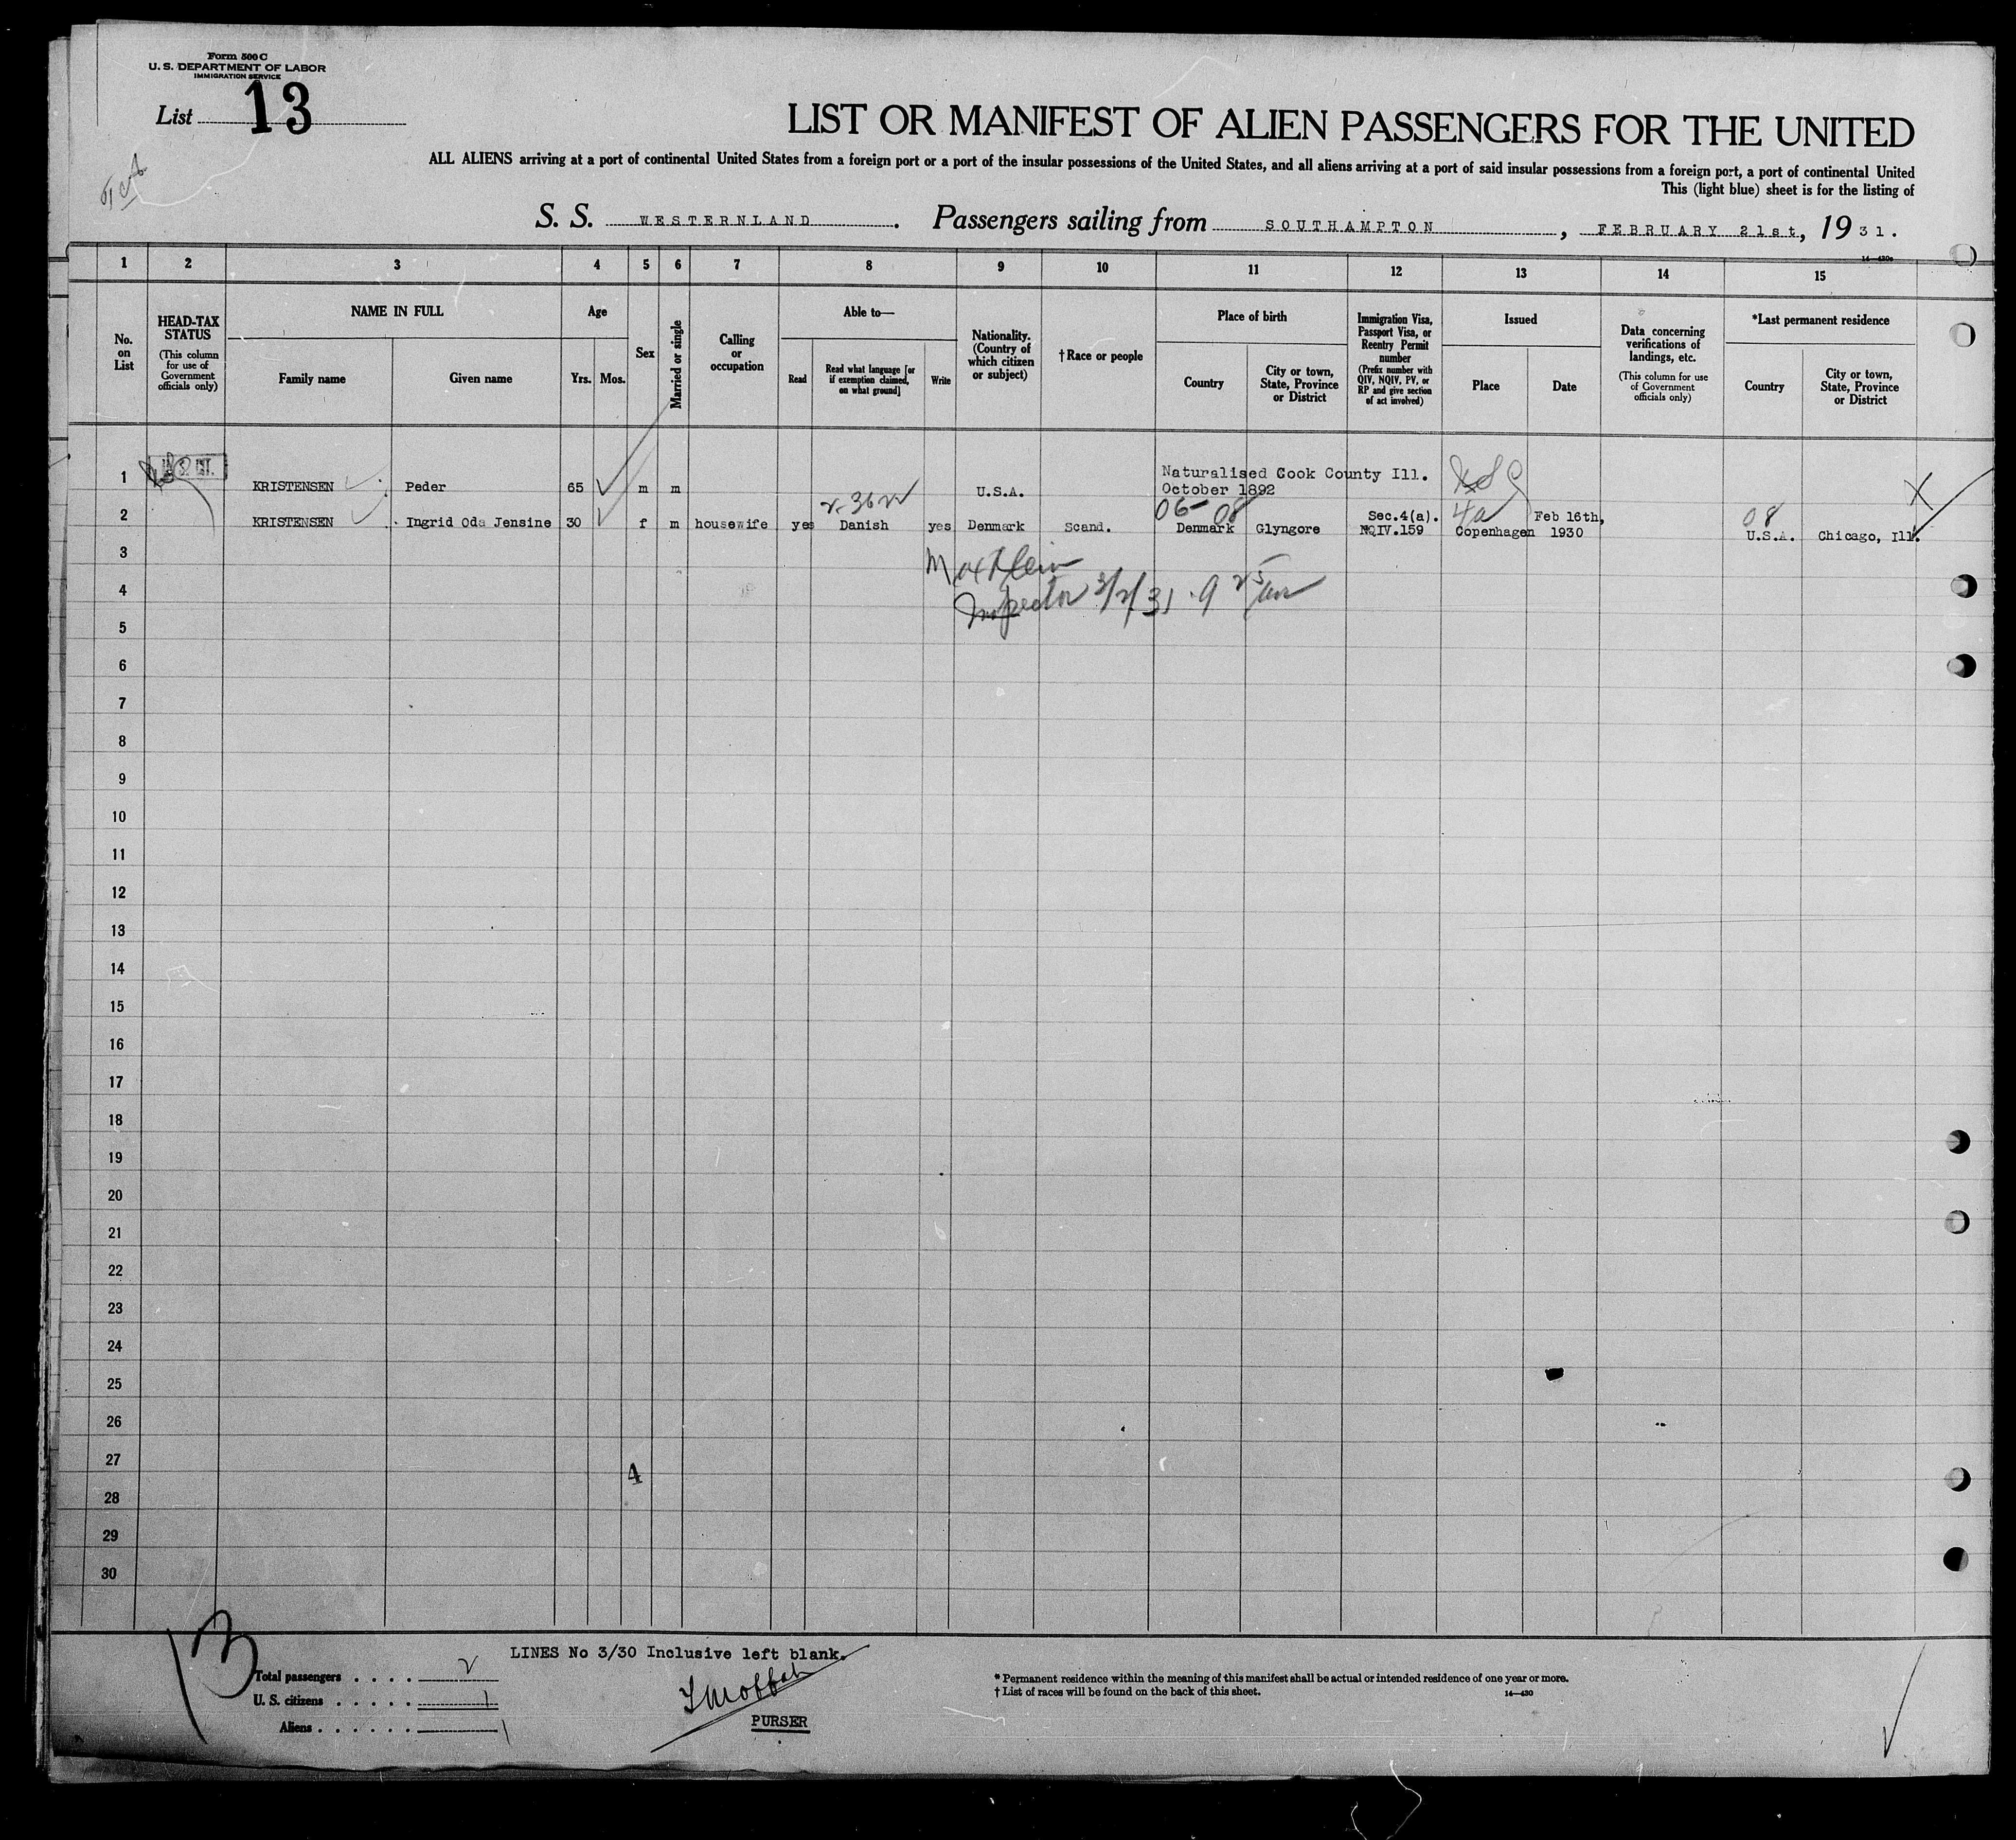 Form 500 C
U. S. DEPARTMENT OF LABOR
IMMIGRATION SERVICE
List 13
LIST OR MANIFEST OF ALIEN PASSENGERS FOR THE UNITED
ALL ALIENS arriving at a port of continental United States from a foreign port or a port of the insular possessions of the United States, and all aliens arriving at a port of said insular possessions from a foreign port, a port of continental United
This (light blue) sheet is for the listing of
S. S. WESTERNLAND. Passengers sailing from SOUTHAMPTON, FEBRUARY 21st, 1931.
14—430a
1 2 3 4 5 6 7 8 9 10 11 12 13 14 15
No. on List
HEAD-TAX STATUS
(This column for use of Government officials only)
NAME IN FULL
Family name
Given name
Age
Yrs. Mos.
Sex
Married or single
Calling or occupation
Able to—
Read
Read what language [or if exemption claimed, on what ground]
Write
Nationality. (Country of which citizen or subject)
† Race or people
Place of birth
Country
City or town, State, Province or District
Immigration Visa, Passport Visa, or Reentry Permit number
(Prefix number with QIV, NQIV, PV, or RP and give section of act involved)
Issued
Place
Date
Data concerning verifications of landings, etc.
(This column for use of Government officials only)
*Last permanent residence
Country
City or town, State, Province or District
1 KRISTENSEN Peder 65 m m U.S.A. Naturalised Cook County Ill. October 1892
06- 08 4a 08
2 KRISTENSEN Ingrid Oda Jensine 30 f m housewife yes Danish yes Denmark Scand. Denmark Glyngore Sec.4(a). NQIV.159 Copenhagen Feb 16th, 1930 U.S.A. Chicago, Ill.
3
Inspector 3/2/31
4
5
6
7
8
9
10
11
12
13
14
15
16
17
18
19
20
21
22
23
24
25
26
27
4
28
29
30
13
LINES No 3/30 Inclusive left blank.
Total passengers . . . . 2
U. S. citizens . . . . . 1
Aliens . . . . . . 1
PURSER
* Permanent residence within the meaning of this manifest shall be actual or intended residence of one year or more.
† List of races will be found on the back of this sheet.
14—430